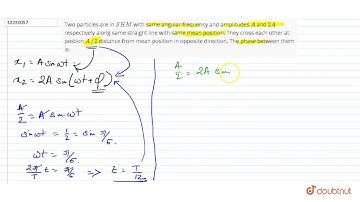 12230057
Two particles are in SHM with same angular frequency and amplitudes A and 2A
respectively along same straight line with same mean position. They cross each other at
postion A/2 distance from mean position in opposite direction. The phase between them
is-
x₁ = A sin ωt
x₂ = 2A sin(ωt + φ)
A/2 = A sin ωt
sin ωt = 1/2 = sin π/6.
ωt = π/6.
2π/T t = π/6 ⇒ t = T/12
A/2 = 2A sin
doubtnut